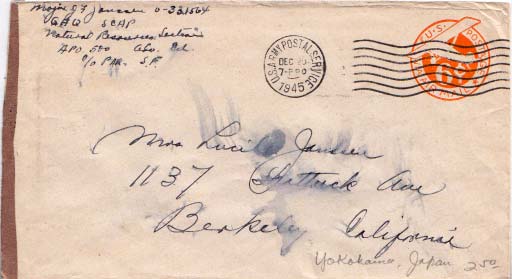 Major J F Janssen O-331564
GHQ SCAP
Natural Resources Section
APO 500
c/o P.M. S.F.
U.S. ARMY POSTAL SERVICE
DEC 20
7-PM
1945
U.S. POSTAGE
6¢
AIR MAIL
Mrs Lucile Janssen
1137 Shattuck Ave
Berkeley California
Yokohama, Japan 2.50